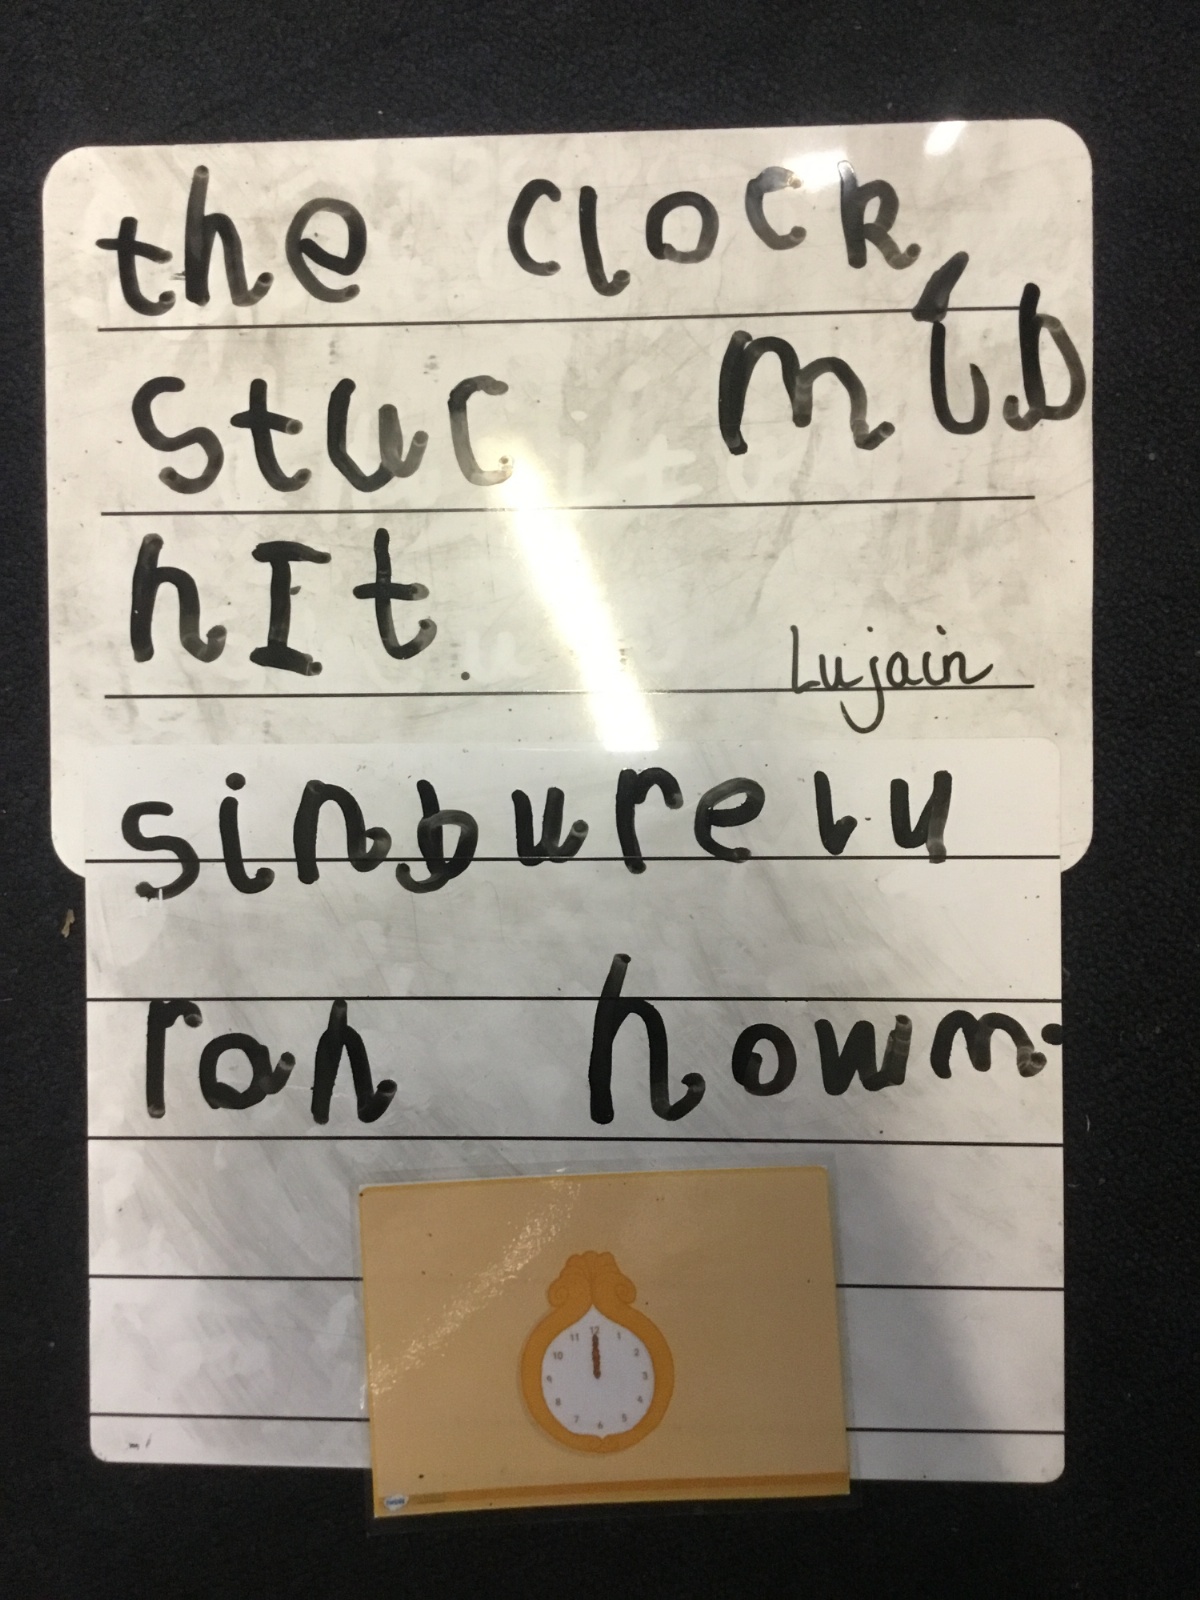 the clock
stuc mib
nIt.
Lujain
sinburelu
ran howm.
12
11 1
10 2
9 3
8 4
7 6 5